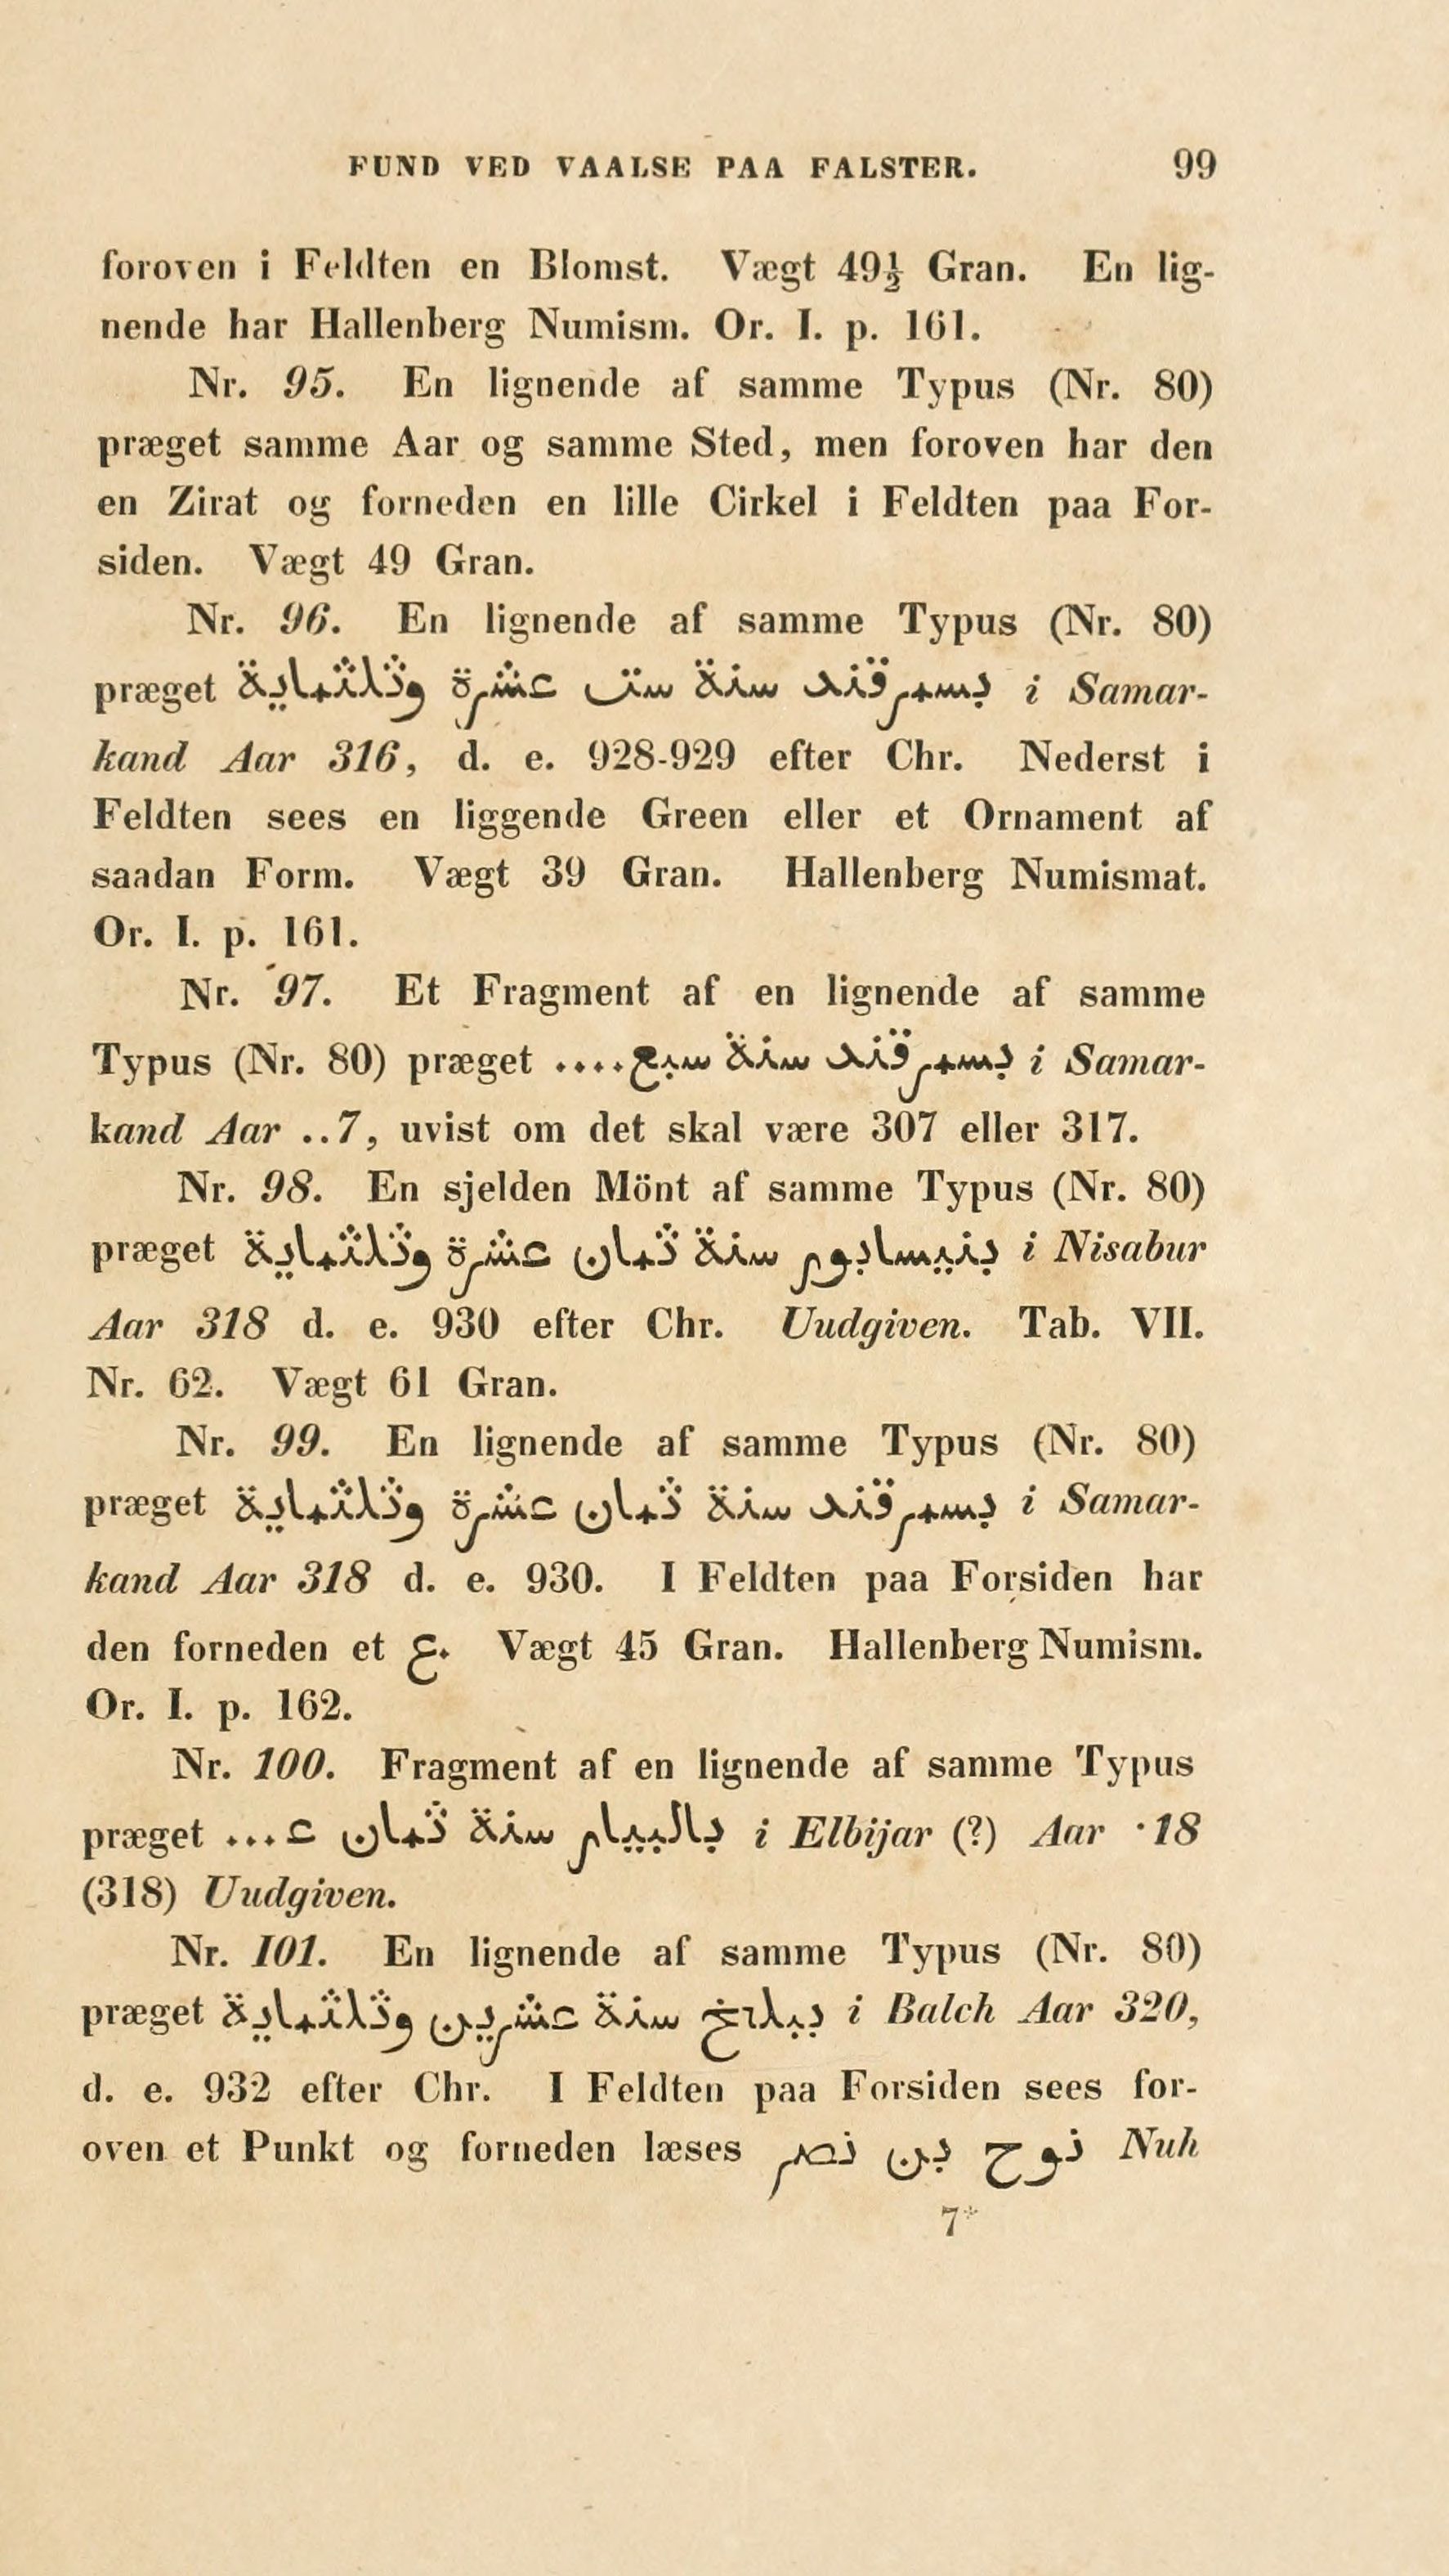 FUND VED VAALSE PAA FALSTER. 99
foroven i Feldten en Blomst. Vægt 49½ Gran. En lig-
nende har Hallenberg Numism. Or. I. p. 161.
Nr. 95. En lignende af samme Typus (Nr. 80)
præget samme Aar og samme Sted, men foroven har den
en Zirat og forneden en lille Cirkel i Feldten paa For-
siden. Vægt 49 Gran.
Nr. 96. En lignende af samme Typus (Nr. 80)
præget بسمرقند سنة ست عشرة وثلثماية i Samar-
kand Aar 316, d. e. 928-929 efter Chr. Nederst i
Feldten sees en liggende Green eller et Ornament af
saadan Form. Vægt 39 Gran. Hallenberg Numismat.
Or. I. p. 161.
Nr. 97. Et Fragment af en lignende af samme
Typus (Nr. 80) præget بسمرقند سنة سبع.... i Samar-
kand Aar ..7, uvist om det skal være 307 eller 317.
Nr. 98. En sjelden Mönt af samme Typus (Nr. 80)
præget بنيسابور سنة ثمان عشرة وثلثماية i Nisabur
Aar 318 d. e. 930 efter Chr. Uudgiven. Tab. VII.
Nr. 62. Vægt 61 Gran.
Nr. 99. En lignende af samme Typus (Nr. 80)
præget بسمرقند سنة ثمان عشرة وثلثماية i Samar-
kand Aar 318 d. e. 930. I Feldten paa Forsiden har
den forneden et ع. Vægt 45 Gran. Hallenberg Numism.
Or. I. p. 162.
Nr. 100. Fragment af en lignende af samme Typus
præget بالبيار سنة ثمان ع... i Elbijar (?) Aar ·18
(318) Uudgiven.
Nr. 101. En lignende af samme Typus (Nr. 80)
præget ببلخ سنة عشرين وثلثماية i Balch Aar 320,
d. e. 932 efter Chr. I Feldten paa Forsiden sees for-
oven et Punkt og forneden læses نوح بن نصر Nuh
7*